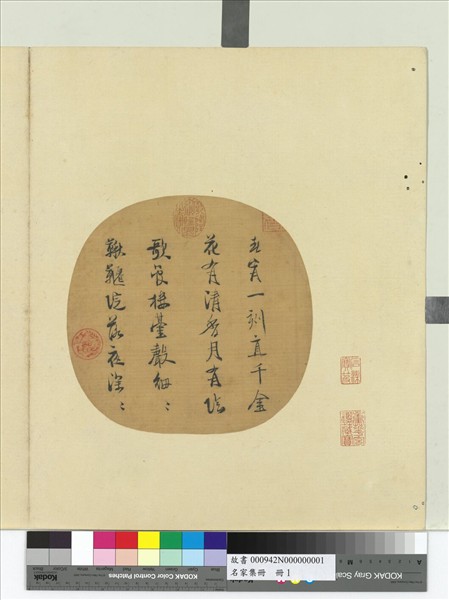 春宵一刻直千金
花有清香月有陰
歌管樓臺聲細〻
鞦韆院落夜深〻
Kodak
KODAK Color Control Patches
故書 000942N000000001
名家集冊 冊 1
KODAK Gray Scal